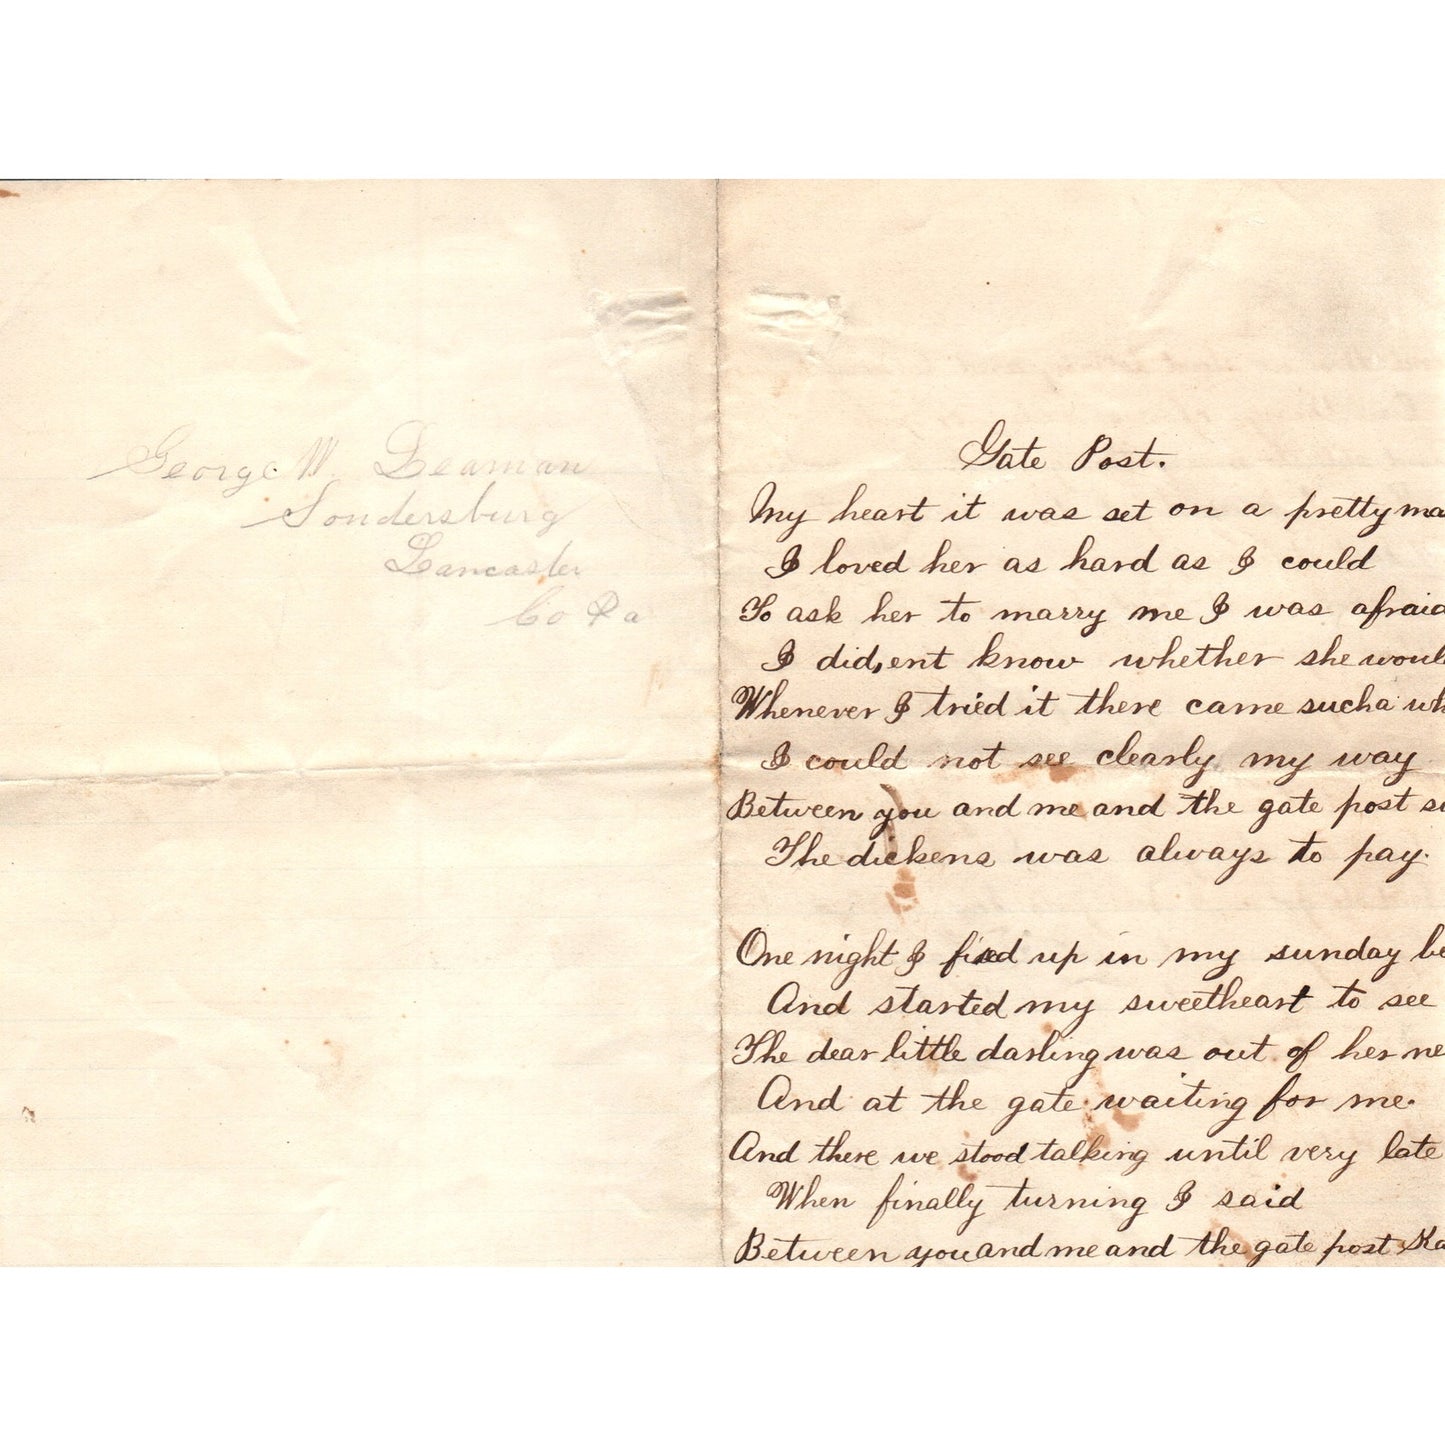 George W. Leaman
Sondersburg
Lancaster
Co Pa
Gate Post.
My heart it was set on a pretty ma
I loved her as hard as I could
To ask her to marry me I was afraid
I did,ent know whether she woul
Whenever I tried it there came such a wh
I could not see clearly my way
Between you and me and the gate post su
The dickens was always to pay.
One night I fixed up in my sunday be
And started my sweetheart to see
The dear little darling was out of her ne
And at the gate waiting for me.
And there we stood talking until very late
When finally turning I said
Between you and me and the gate post Ka